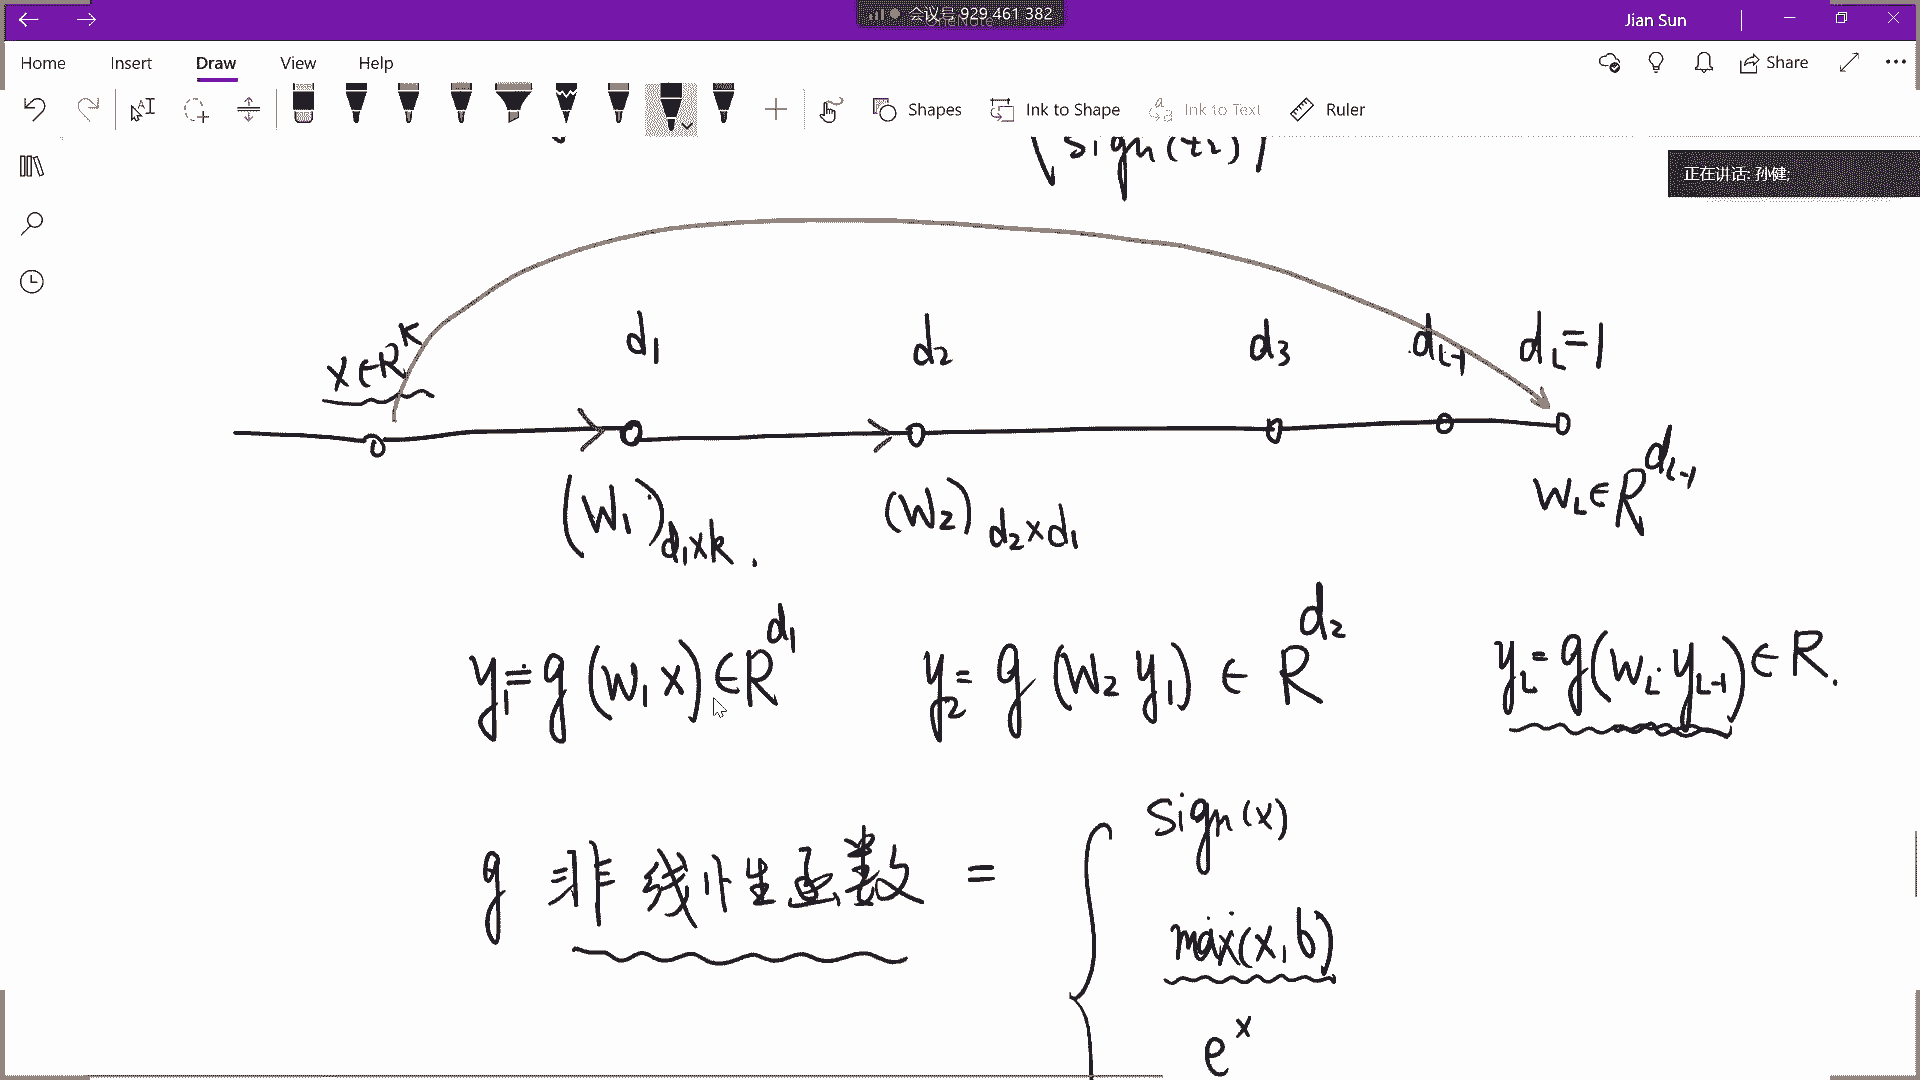 会议号 929 461 382
Jian Sun
Home Insert Draw View Help
Share
Shapes Ink to Shape Ink to Text Ruler
正在讲话: 孙健;
sign(t2)
x∈R^k d1 d2 d3 dL-1 dL=1
(W1)d1×k. (W2)d2×d1 WL∈R^dL-1
y1=g(W1x)∈R^d1 y2=g(W2y1)∈R^d2 yL=g(WL·yL-1)∈R.
g 非线性函数 =
sign(x)
max(x,b)
e^x